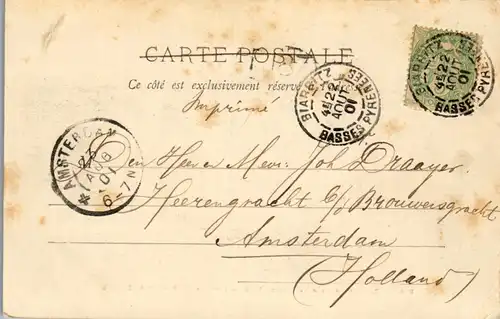 CARTE POSTALE
Ce côté est exclusivement réservé
Imprimé
BIARRITZ
4E 22
AOUT
01
BASSES PYRENEES
BIARRITZ
4E 22
AOUT
01
BASSES PYRENEES
AMSTERDAM
23
AUG
01
6-7N
Den Heer en Mevr: Joh Draayer
Heerengracht b/d Brouwersgracht
Amsterdam
(Holland)